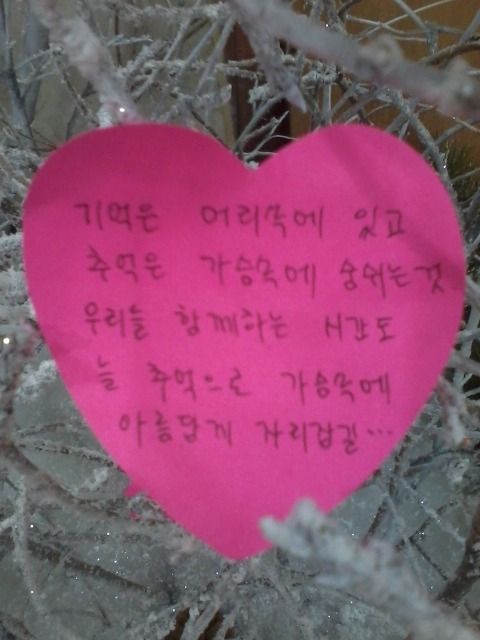 기억은 머리속에 있고
추억은 가슴속에 숨쉬는것
우리들 함께하는 시간도
늘 추억으로 가슴속에
아름답게 자리잡길...